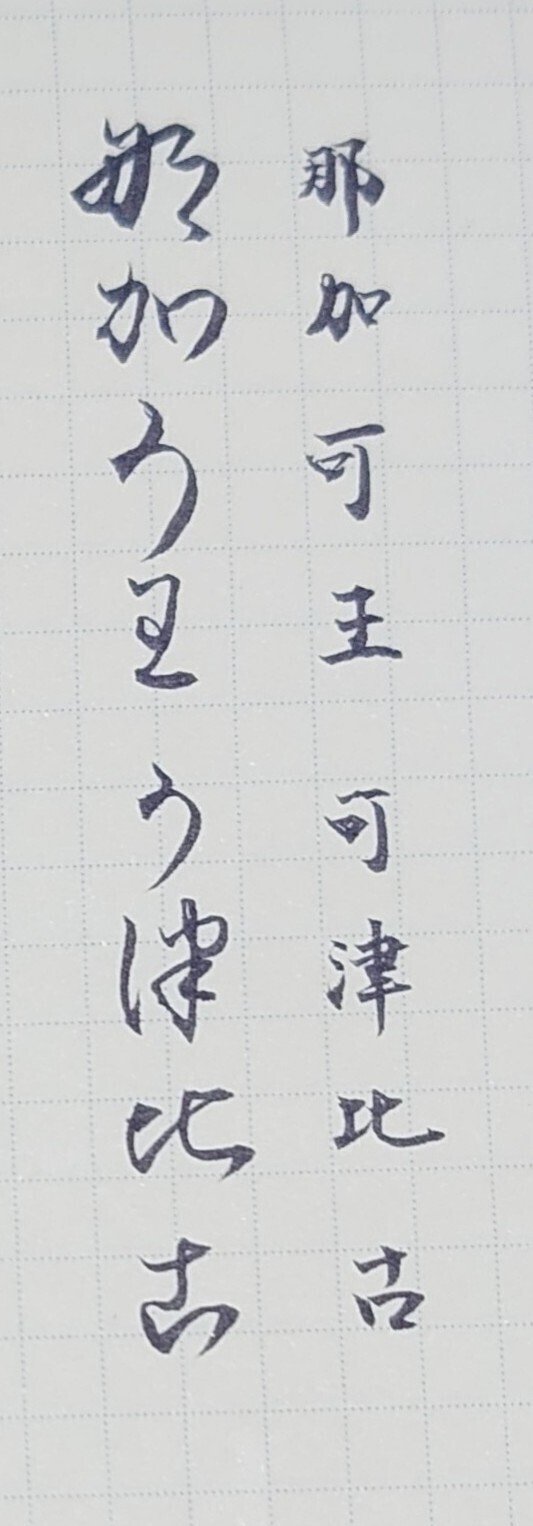 那加可王可津比古
那加可王可津比古